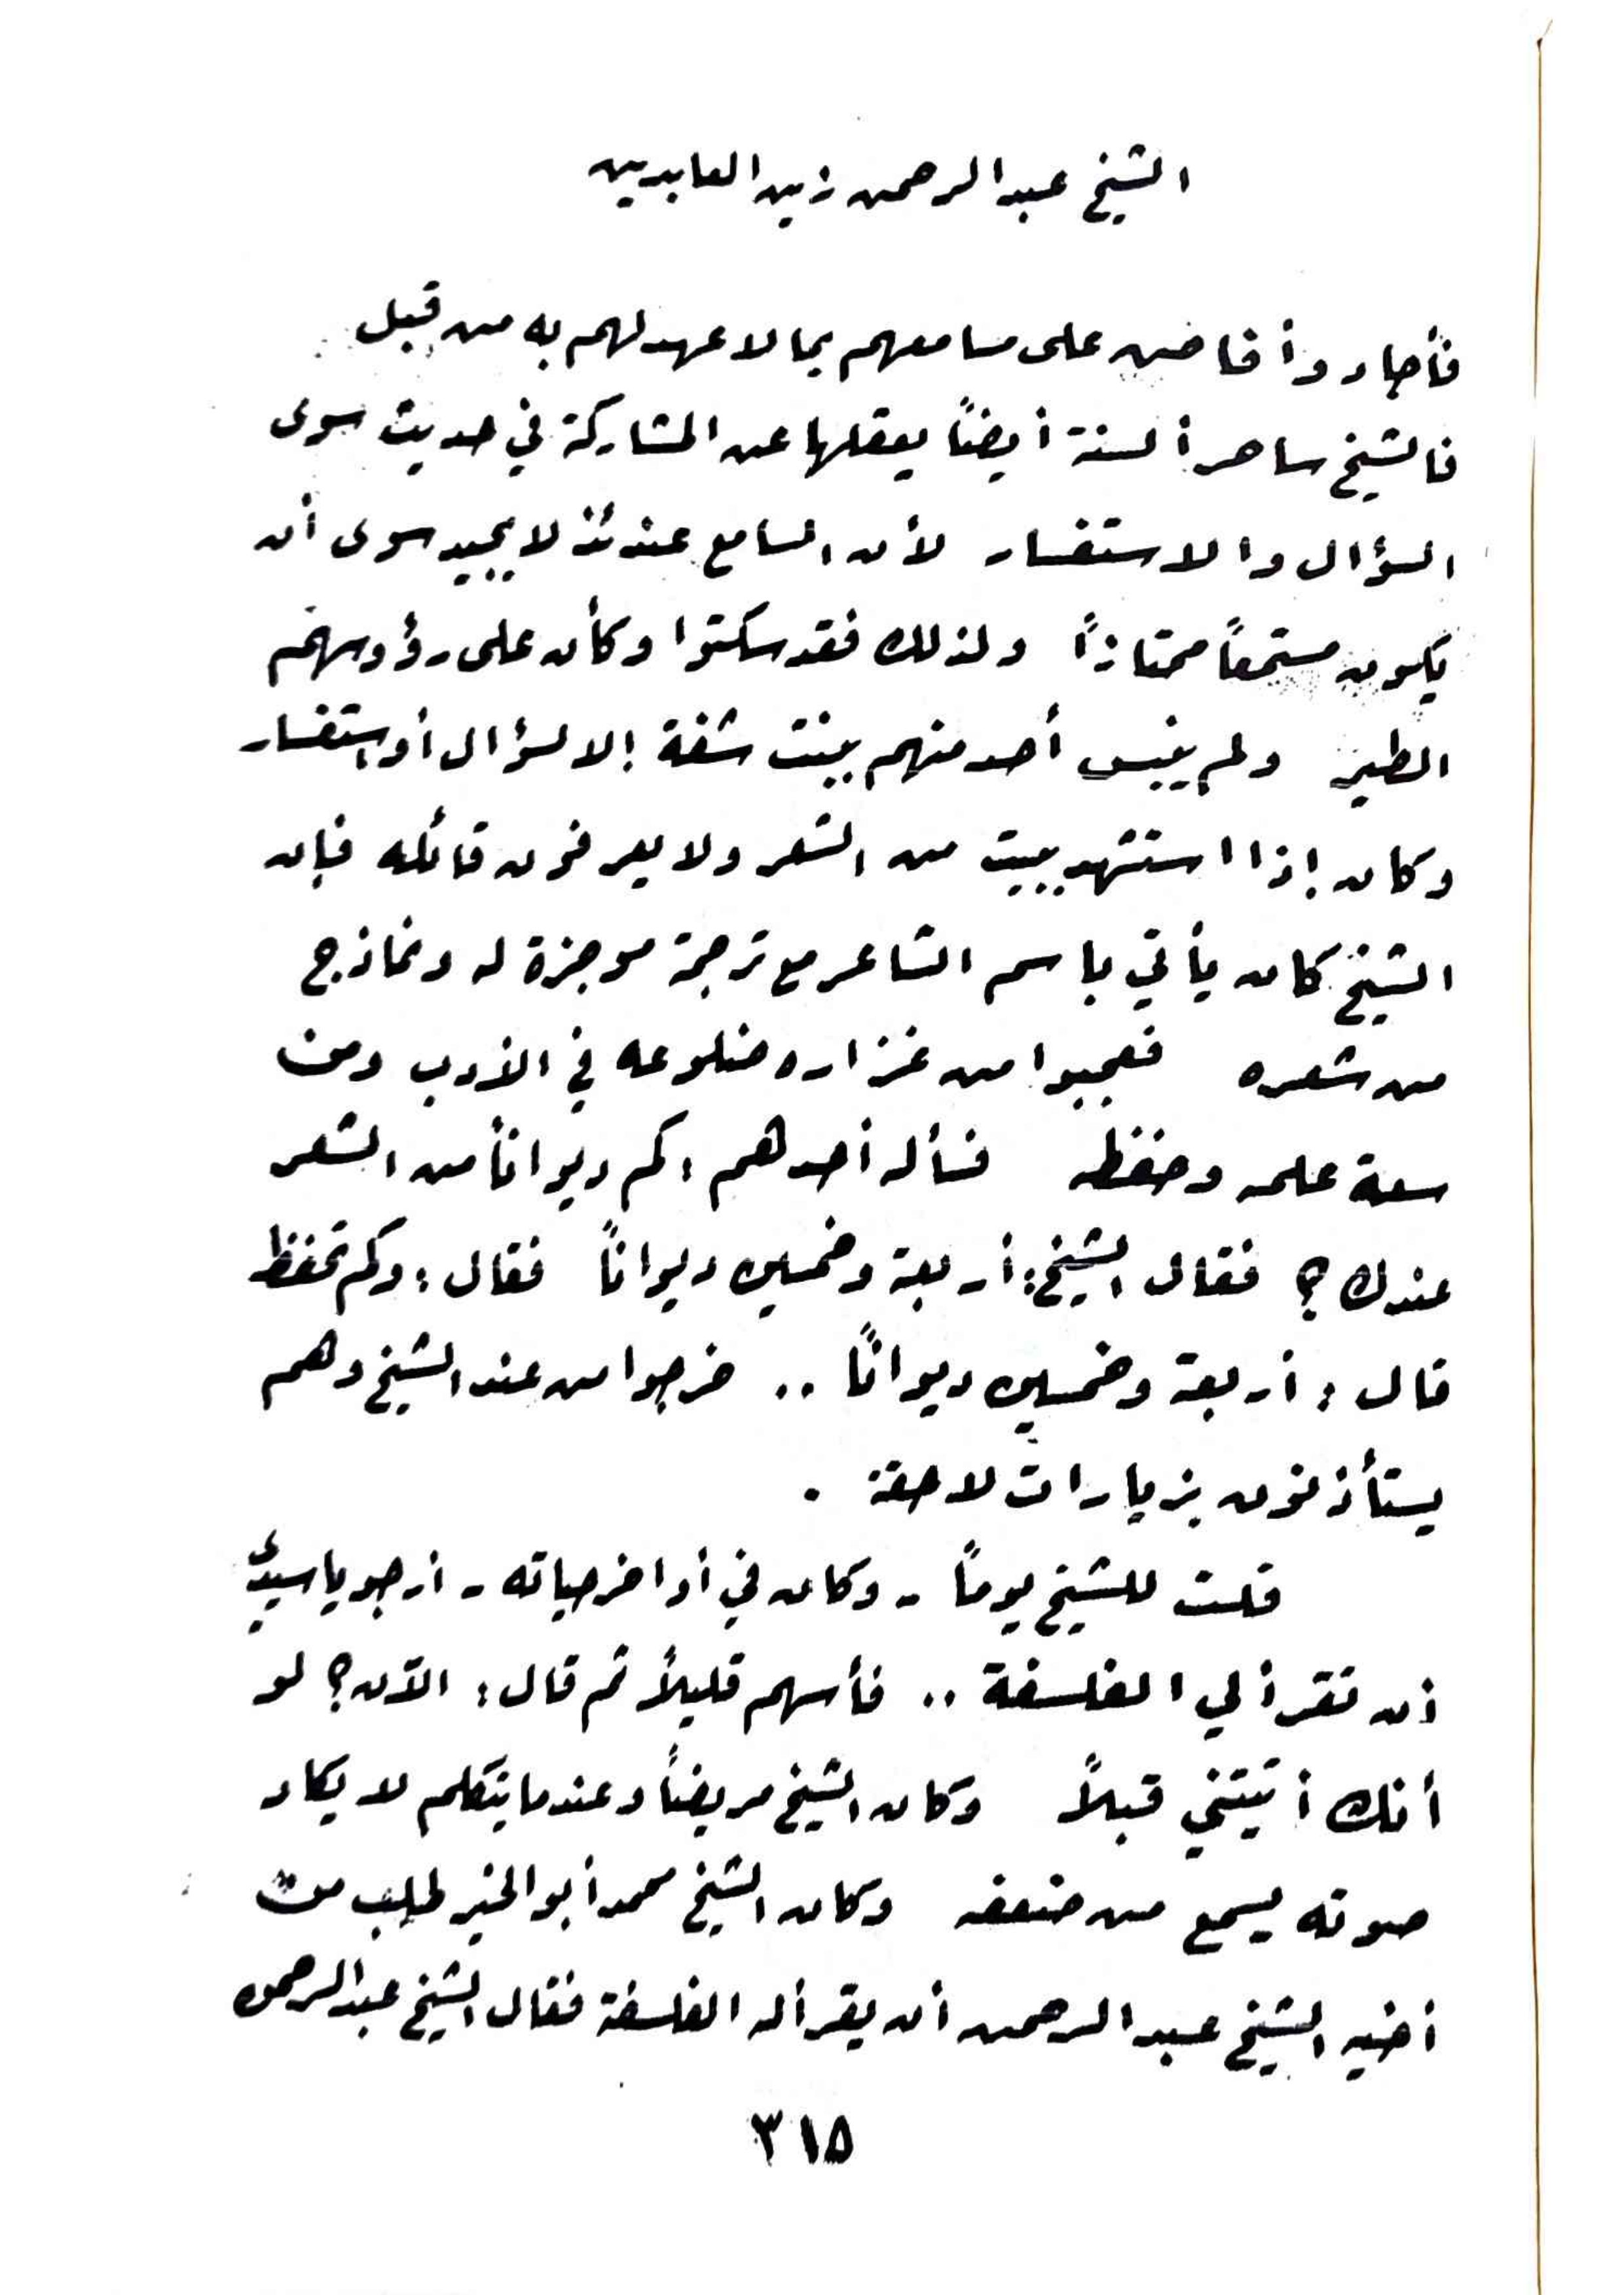 الشيخ عبد الرحمن زين العابدين
فأجاد وأفاض على مسامعهم بما لا عهد لهم به من قبل
فالشيخ ساحر ألسنة أيضاً يعقلها عن المشاركة في حديث سوى
السؤال والاستفسار لأن السامع عندئذ لا يجيد سوى أن
يكون مستمعاً ممتازاً ولذلك فقد سكتوا وكأن على رؤوسهم
الطير ولم ينبس أحد منهم ببنت شفة إلا لسؤال أو استفسار
وكان إذا استشهد ببيت من الشعر ولا يعرفون قائله فإن
الشيخ كان يأتي باسم الشاعر مع ترجمة موجزة له ونماذج
من شعره فعجبوا من غزاره ضلوعه في الأدب ومن
سعة علمه وحفظه فسأله أحدهم : كم ديواناً من الشعر
عندك ؟ فقال الشيخ : أربعة وخمسين ديواناً فقال : وكم تحفظ
قال : أربعة وخمسين ديواناً .. خرجوا من عند الشيخ وهم
يستأذنون بزيارات لاحقة .
قلت للشيخ يوماً - وكان في أواخر حياته - أرجو يا سيدي
أن تقرأ لي الفلسفة .. فأسهم قليلاً ثم قال : الآن ؟ لو
أنك أتيتني قبلاً وكان الشيخ مريضاً وعندما يتكلم لا يكاد
صوته يسمع من ضعفه وكان الشيخ محمد أبو الخير طلب من
أخيه الشيخ عبد الرحمن أن يقرأ له الفلسفة فقال الشيخ عبد الرحمن
٣١٥